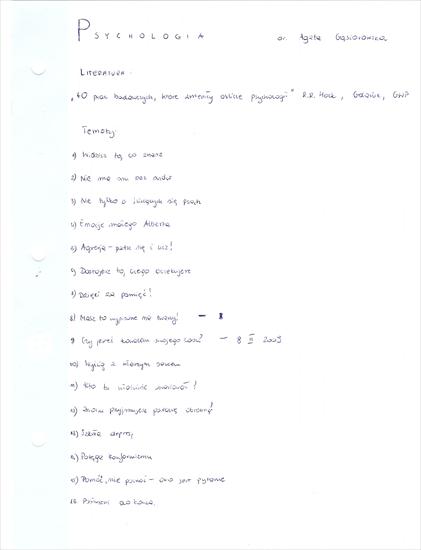 PSYCHOLOGIA dr. Agata Gąsiorowska
LITERATURA:
"40 prac badawczych, które zmieniły oblicze psychologii" R.R. Hock, Gdańsk, GWP
Tematy:
1) Widzisz to, co znasz
2) Nie ma snu bez snów
3) Nie tylko o śliniących się psach
4) Emocje małego Alberta
5) Agresja - patrz się i ucz!
6) Dostajesz to, czego oczekujesz
7) Dzięki za pamięć!
8) Masz to wypisane na twarzy! - 8
9 Czy jesteś kowalem swojego losu? - 8 III 2009
10) Wyścig z własnym sercem
11) Kto tu właściwie zwariował?
12) Znowu przyjmujesz postawę obronną!
13) depresję
14) Potęga konformizmu
15) Pomóc, nie pomóc - oto jest pytanie
16 do końca.